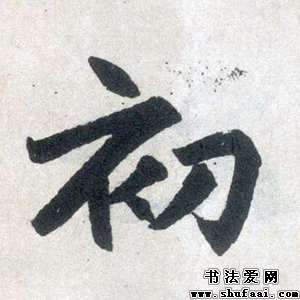 初
书法爱网
www.shufaai.com